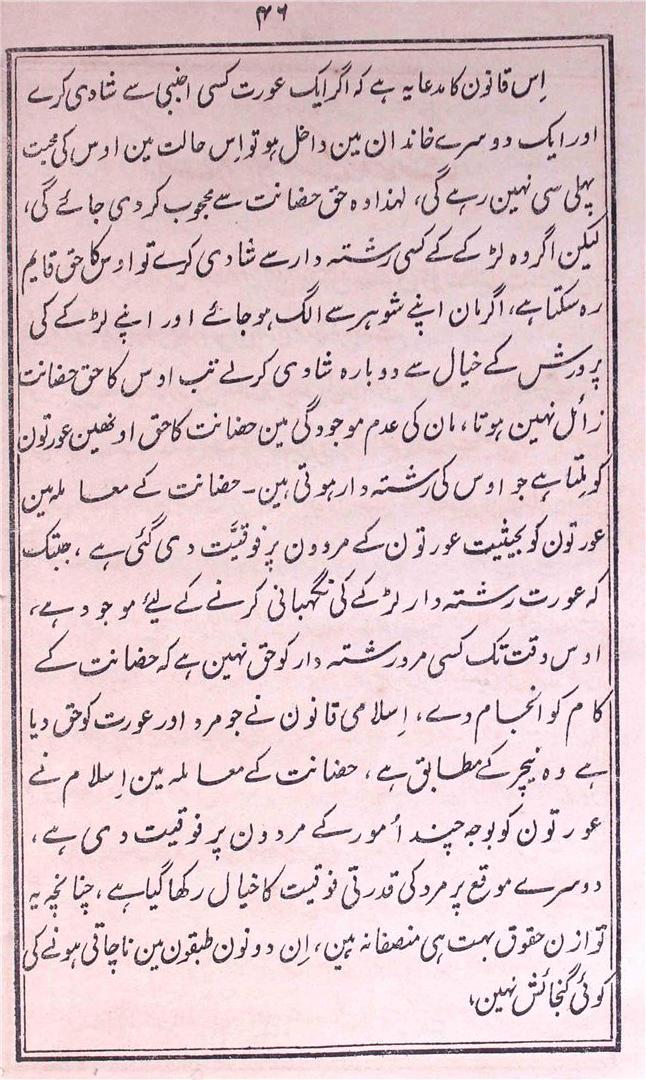 ۴۶
اِس قانون کا مدعا یہ ہے کہ اگر ایک عورت کسی اجنبی سے شادی کرے
اور ایک دوسرے خاندان مین داخل ہو تو اِس حالت مین اوس کی محبت
پہلی سی نہین رہے گی، لہذا وہ حق حضانت سے محجوب کر دی جائے گی،
لیکن اگر وہ لڑکے کے کسی رشتہ دار سے شادی کرے تو اوس کا حق قایم
رہ سکتا ہے، اگر مان اپنے شوہر سے الگ ہو جائے اور اپنے لڑکے کی
پرورش کے خیال سے دوبارہ شادی کرلے تب اوس کا حق حضانت
زائل نہین ہوتا، مان کی عدم موجودگی مین حضانت کا حق اونھین عورتون
کو ملتا ہے جو اوس کی رشتہ دار ہوتی ہین۔ حضانت کے معاملہ مین
عورتون کو بحیثیت عورتون کے مردون پر فوقیَّت دی گئی ہے، جبتک
کہ عورت رشتہ دار لڑکے کی نگہبانی کرنے کے لیئے موجود ہے،
اوس وقت تک کسی مرد رشتہ دار کو حق نہین ہے کہ حضانت کے
کام کو انجام دے، اِسلامی قانون نے جو مرد اور عورت کو حق دیا
ہے وہ نیچر کے مطابق ہے، حضانت کے معاملہ مین اِسلام نے
عورتون کو بوجہ چند اُمور کے مردون پر فوقیت دی ہے،
دوسرے موقع پر مرد کی قدرتی فوقیت کا خیال رکھا گیا ہے، چنانچہ یہ
توازن حقوق بہت ہی منصفانہ ہین، اِن دونون طبقون مین ناچاقی ہونے کی
کوئی گنجائش نہین،